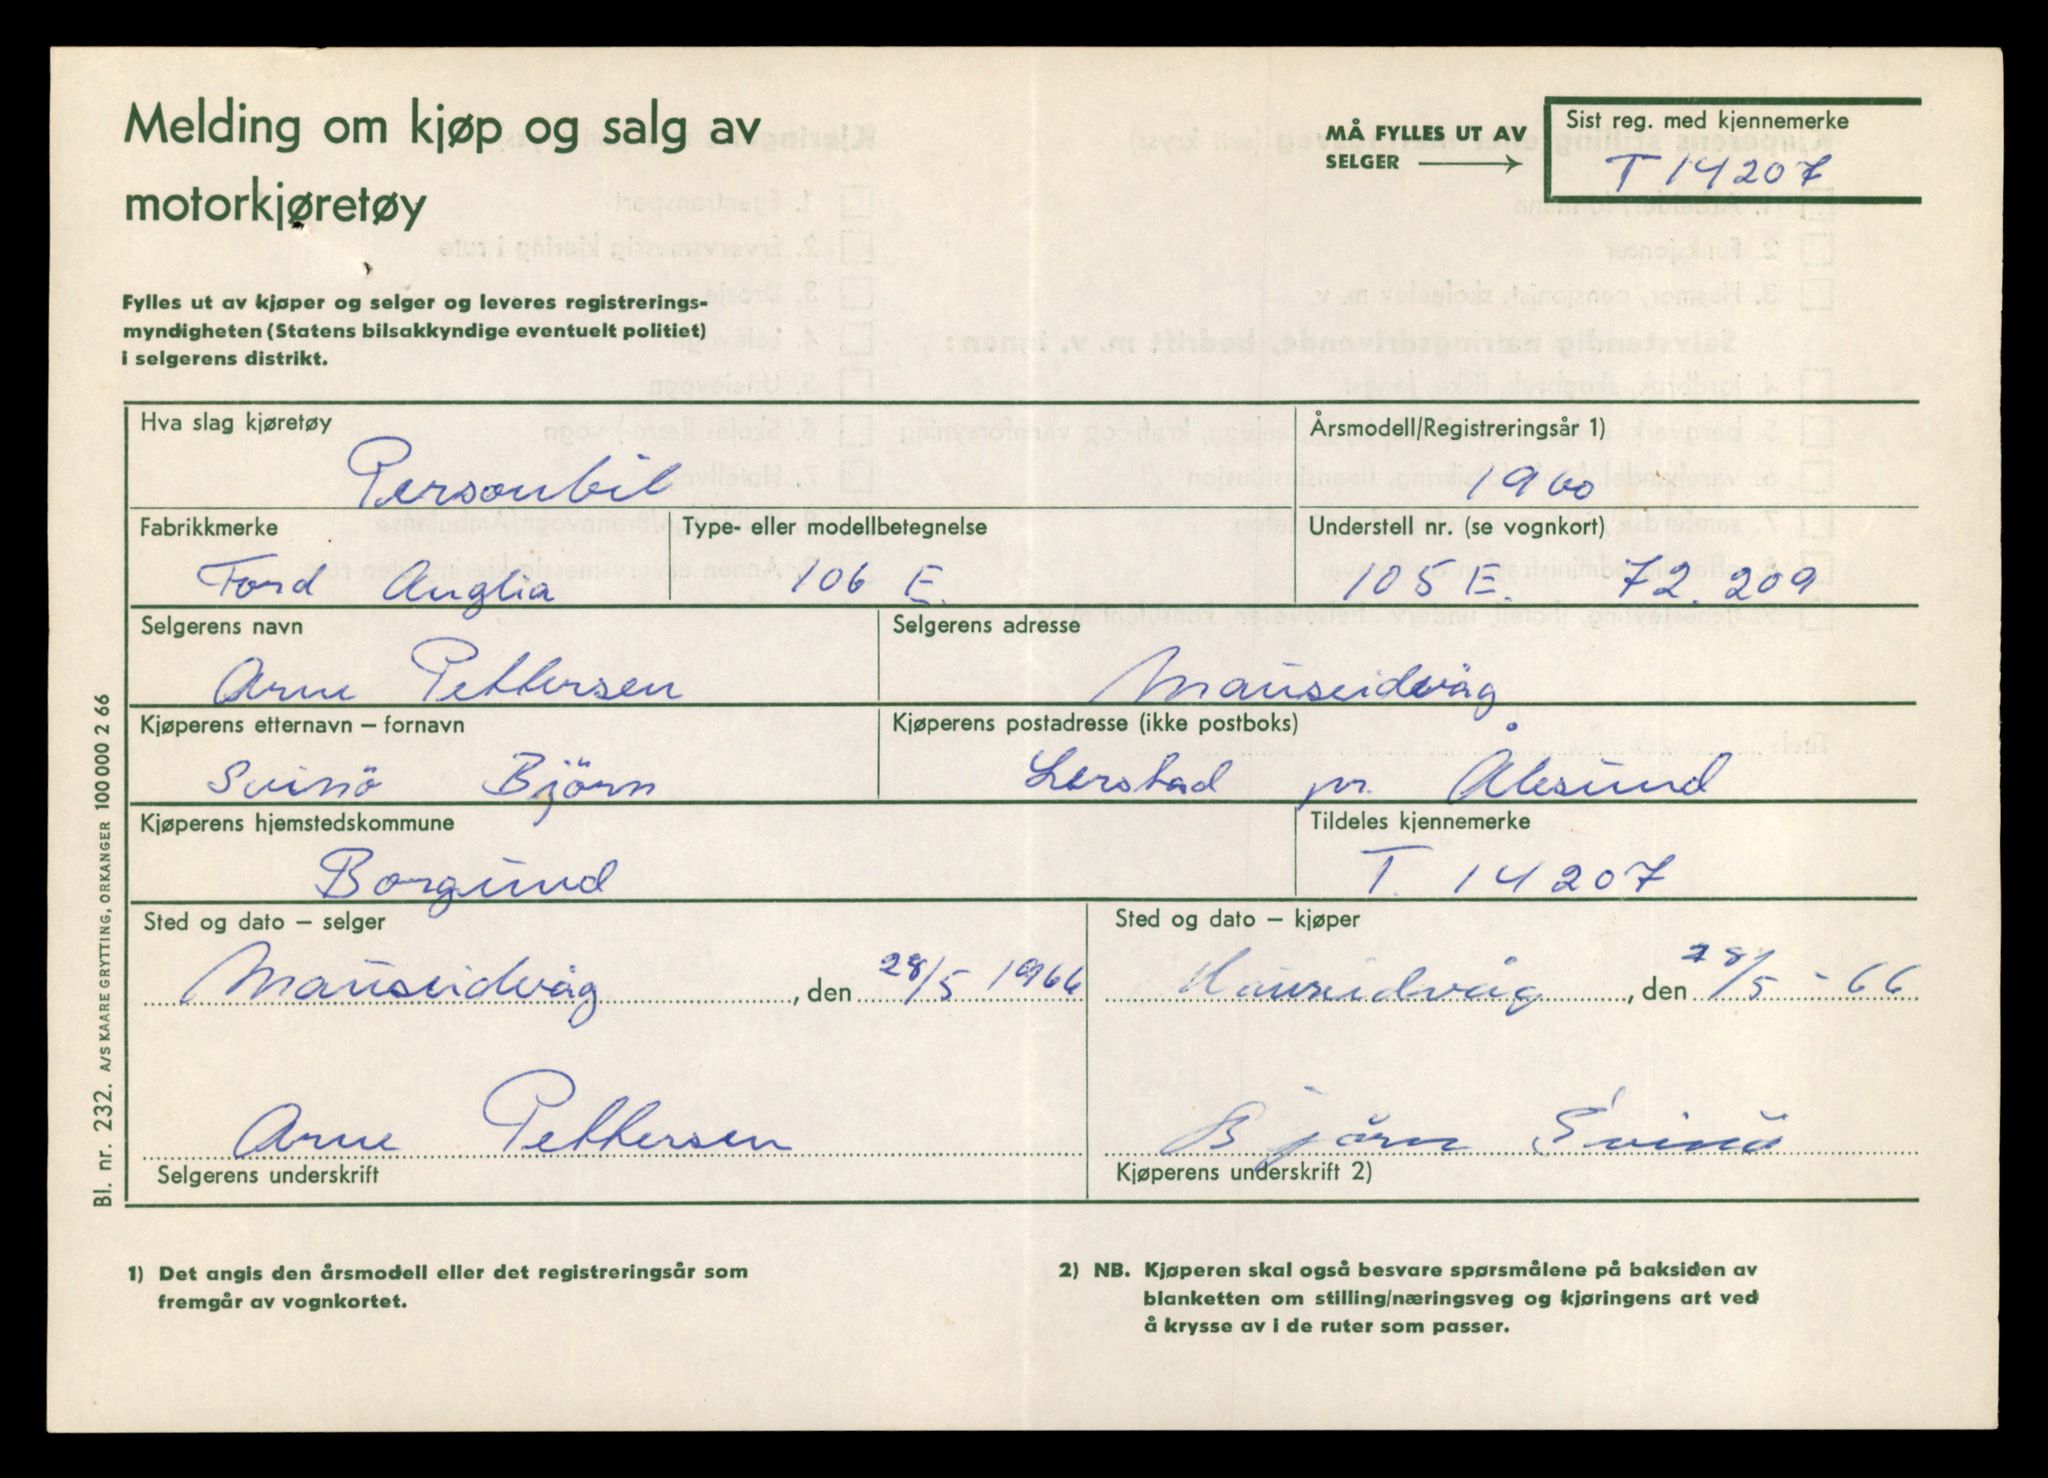 Melding om kjøp og salg av
motorkjøretøy
MÅ FYLLES UT AV
SELGER
Sist reg. med kjennemerke
T 14207
Fylles ut av kjøper og selger og leveres registrerings-
myndigheten (Statens bilsakkyndige eventuelt politiet)
i selgerens distrikt.
Hva slag kjøretøy
Personbil
Årsmodell/Registreringsår 1)
1960
Fabrikkmerke
Ford Anglia
Type- eller modellbetegnelse
106 E.
Understell nr. (se vognkort)
105 E. 72.209
Selgerens navn
Arne Pettersen
Selgerens adresse
Mauseidvåg
Kjøperens etternavn – fornavn
Svinö Björn
Kjøperens postadresse (ikke postboks)
Lerstad pr. Ålesund
Kjøperens hjemstedskommune
Borgund
Tildeles kjennemerke
T. 14207
Sted og dato – selger
Mauseidvåg, den 28/5 1966
Sted og dato – kjøper
Mauseidvåg, den 28/5 - 66
Arne Pettersen
Selgerens underskrift
Björn Svinö
Kjøperens underskrift 2)
1) Det angis den årsmodell eller det registreringsår som
fremgår av vognkortet.
2) NB. Kjøperen skal også besvare spørsmålene på baksiden av
blanketten om stilling/næringsveg og kjøringens art ved
å krysse av i de ruter som passer.
Bl. nr. 232. A/S KAARE GRYTTING, ORKANGER 100 000 2 66